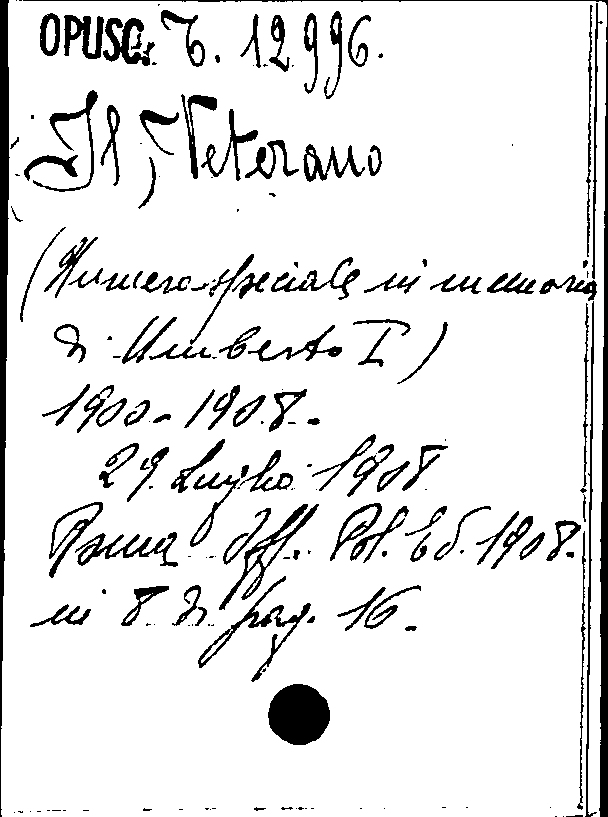 OPUSC. B. 12996.
Il Veterano
(Numero speciale in memoria
di Umberto I)
1900-1908.
29. Luglio 1908
Roma Off. Pol. Ed. 1908.
in 8. di pag. 16.